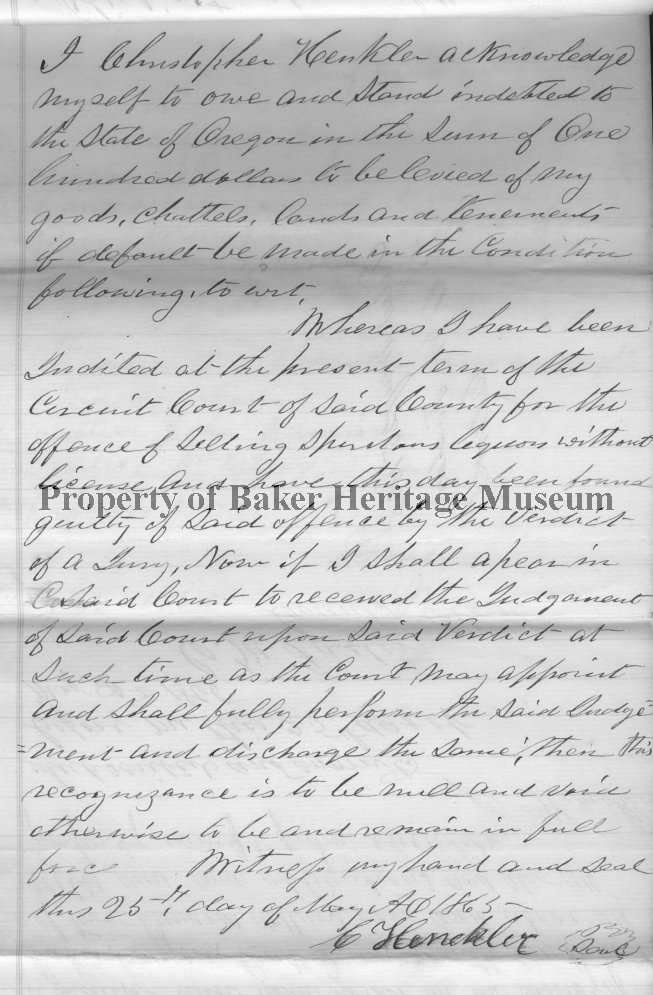 I Christopher Henkler acknowledge
myself to owe and stand indebted to
the State of Oregon in the Sum of One
hundred dollars to be levied of my
goods, chattels, lands and tenements
if default be made in the Condition
following, to wit,
Whereas I have been
Indited at the present term of the
Circuit Court of said County for the
offence of Selling Spiritous liquors without
license, and have this day been found
Property of Baker Heritage Museum
guilty of said offence by the Verdict
of a Jury, Now if I shall apear in
said Court to received the Judgament
of said Court upon said Verdict at
Such time as the Court may appoint
and shall fully perform the said Judge=
=ment and discharge the same, then this
recognizance is to be null and void
otherwise to be and remain in full
force Witness my hand and seal
this 25th, day of May AD 1865
C Henckler Seal